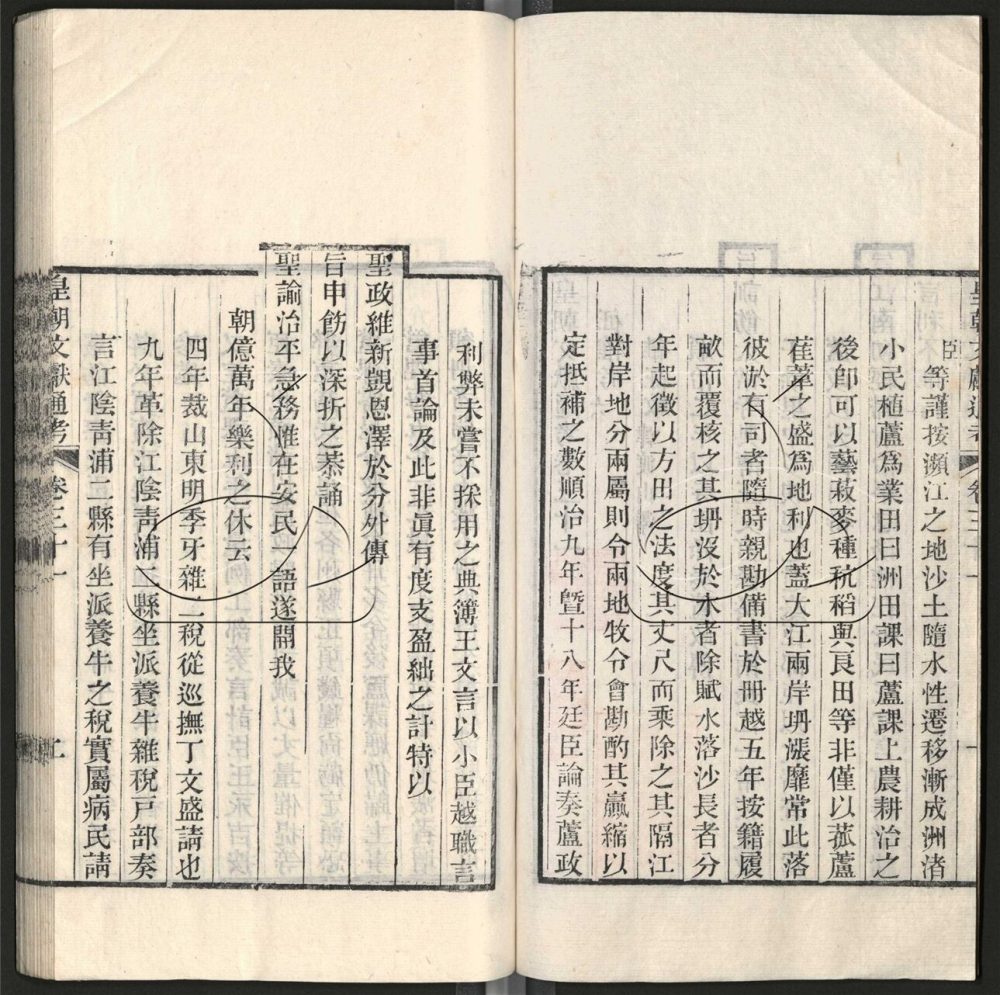 皇朝文獻通考 卷三十一
臣等謹按瀕江之地沙土隨水性遷移漸成洲渚
小民植蘆爲業田曰洲田課曰蘆課上農耕治之
後卽可以藝菽麥種秔稻與良田等非僅以菰蘆
萑葦之盛爲地利也蓋大江兩岸坍漲靡常此落
彼淤有司者隨時親勘備書於冊越五年按籍履
畝而覆核之其坍沒於水者除賦水落沙長者分
年起徵以方田之法度其丈尺而乘除之其隔江
對岸地分兩屬則令兩地牧令會勘酌其贏縮以
定抵補之數順治九年曁十八年廷臣論奏蘆政
利弊未嘗不採用之典簿王文言以小臣越職言
事首論及此非眞有度支盈絀之計特以
聖政維新覬恩澤於分外傳
旨申飭以深折之恭誦
聖諭治平急務惟在安民一語遂開我
朝億萬年樂利之休云
四年裁山東明季牙雜二稅從巡撫丁文盛請也
九年革除江陰靑浦二縣坐派養牛雜稅戸部奏
言江陰靑浦二縣有坐派養牛之稅實屬病民請
皇朝文獻通考 卷三十一